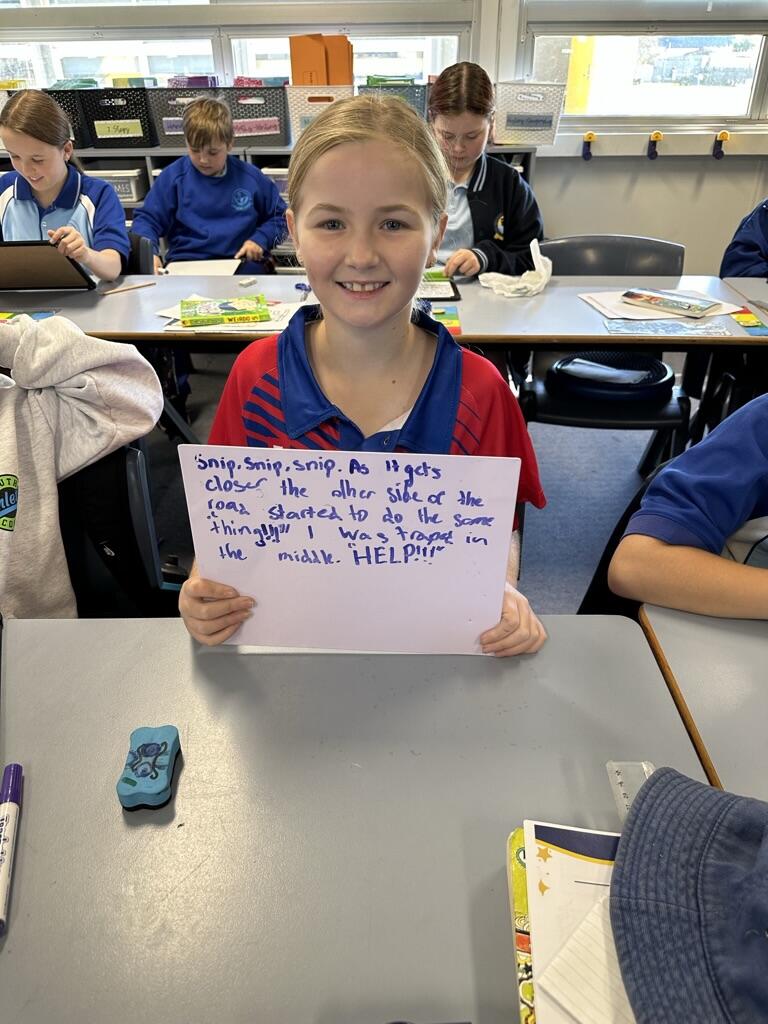 Sloppy
GAMES
WEIRDO
"Snip, Snip, snip. As it gets
closer the other side of the
road started to do the same
thing!!!!" I was traped in
the middle. "HELP!!!"